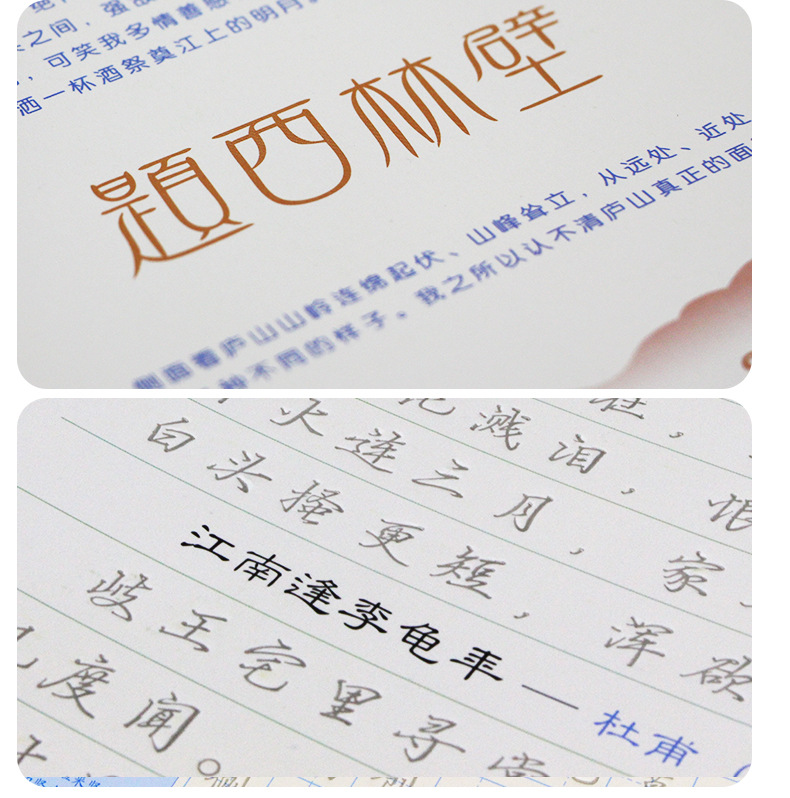 之间，强
，可笑我多情善感
洒一杯酒祭奠江上的明月
題西林壁
侧面看庐山山岭连绵起伏、山峰耸立，从远处、近处
种不同的样子。我之所以认不清庐山真正的面
花溅泪，恨
火连三月，家
白头搔更短，浑欲
江南逢李龟年—杜甫
岐王宅里寻常
几度闻。